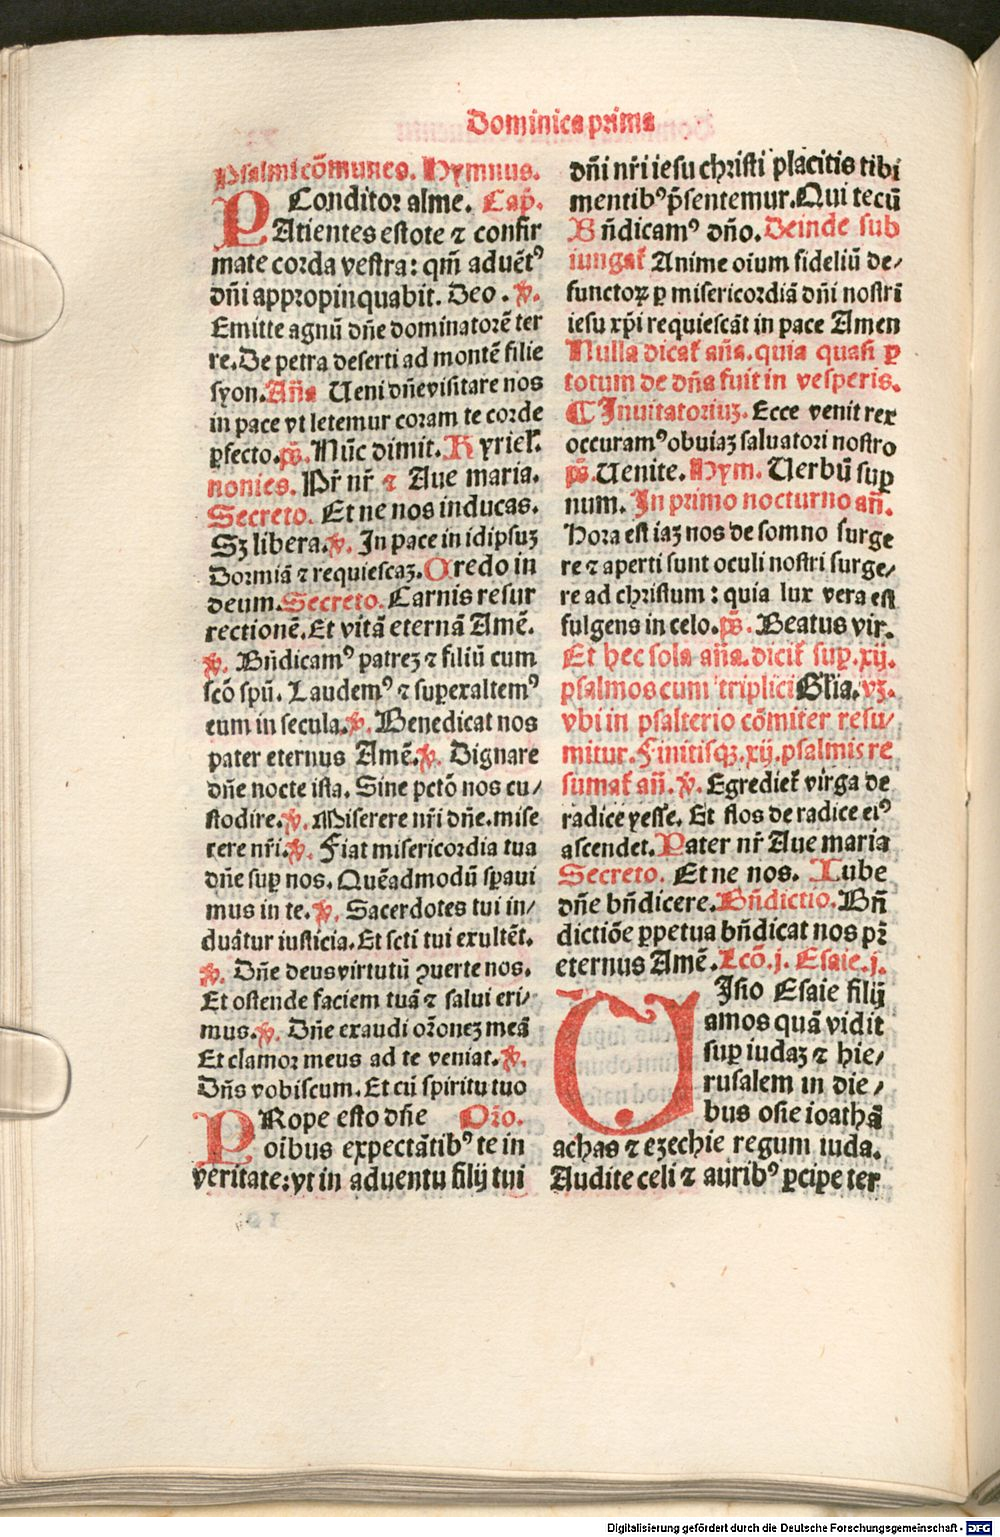 Dominica prima
Psalmi cõmunes. Hymnus.
Conditor alme. Capͥ.
PAtientes estote ⁊ confir
mate corda vestra: qm̃ aduẽtꝰ
dñi appropinquabit. Deo. ℣.
Emitte agnũ dñe dominatorẽ ter
re. De petra deserti ad montẽ filie
syon. Añа Ueni dñe visitare nos
in pace vt letemur coram te corde
ꝑfecto. p̃s. Nũc dimit. Kyriel̃.
nonies. Pr̃ nr̃ ⁊ Aue maria.
Secreto. Et ne nos inducas.
Sꝫ libera. ℣. In pace in idipsuꝫ
Dormiã ⁊ requiescaꝫ. Credo in
deum. Secreto. Carnis resur
rectionẽ. Et vitã eternã Amẽ.
℣. Bñdicamꝰ patreꝫ ⁊ filiũ cum
scõ spũ. Laudemꝰ ⁊ suꝑexaltemꝰ
eum in secula. ℣. Benedicat nos
pater eternus Amẽ. ℣. Dignare
dñe nocte ista. Sine pctõ nos cu/
stodire. ℣. Miserere nr̃i dñe. mise
rere nr̃i. ℣. Fiat misericordia tua
dñe suꝑ nos. Quẽadmodũ sꝑaui
mus in te. ℣. Sacerdotes tui in/
duãtur iusticia. Et scti tui exultẽt.
℣. Dñe deus virtutũ ꝯuerte nos.
Et ostende faciem tuã ⁊ salui eri/
mus. ℣. Dñe exaudi or̃oneꝫ meã
Et clamor meus ad te veniat. ℣.
Dñs vobiscum. Et cũ spiritu tuo
PRope esto dñe Or̃o.
oibus expectãtibꝰ te in
veritate: vt in aduentu filij tui
dñi nr̃i iesu christi placitis tibi
mentibꝰ p̃sentemur. Qui tecũ
Bñdicamꝰ dño. Deinde sub
iungat̃ Anime oium fideliũ de/
functoꝝ ꝑ misericordiã dñi nostri
iesu xp̃i requiescãt in pace Amen
Nulla dicat̃ aña. quia quasi ꝑ
totum de dña fuit in vesperis.
¶ Inuitatoriuꝫ. Ecce venit rex
occuramꝰ obuiaꝫ saluatori nostro
p̃s. Uenite. Hym. Uerbũ suꝑ
num. In primo nocturno añ.
Hora est iaꝫ nos de somno surge
re ⁊ aperti sunt oculi nostri surge/
re ad christum: quia lux vera est
fulgens in celo. p̃s. Beatus vir.
Et hec sola aña. dicit̃ suꝑ. xij.
psalmos cum triplici Gl̃ia. vꝫ.
vbi in psalterio cõmiter resu/
mitur. Finitisqꝫ. xij. psalmis re
sumat̃ añ. ℣. Egrediet̃ virga de
radice yesse. Et flos de radice eiꝰ
ascendet. Pater nr̃ Aue maria
Secreto. Et ne nos. Iube
dñe bñdicere. Bñdictio. Bñ
dictiõe ꝑpetua bñdicat nos pr̃
eternus Amẽ. Lcõ. j. Esaie. j.
UIsio Esaie filij
amos quã vidit
suꝑ iudaꝫ ⁊ hie/
rusalem in die/
bus osie ioathã
achas ⁊ ezechie regum iuda.
Audite celi ⁊ auribꝰ ꝑcipe ter
Digitalisierung gefördert durch die Deutsche Forschungsgemeinschaft - DFG